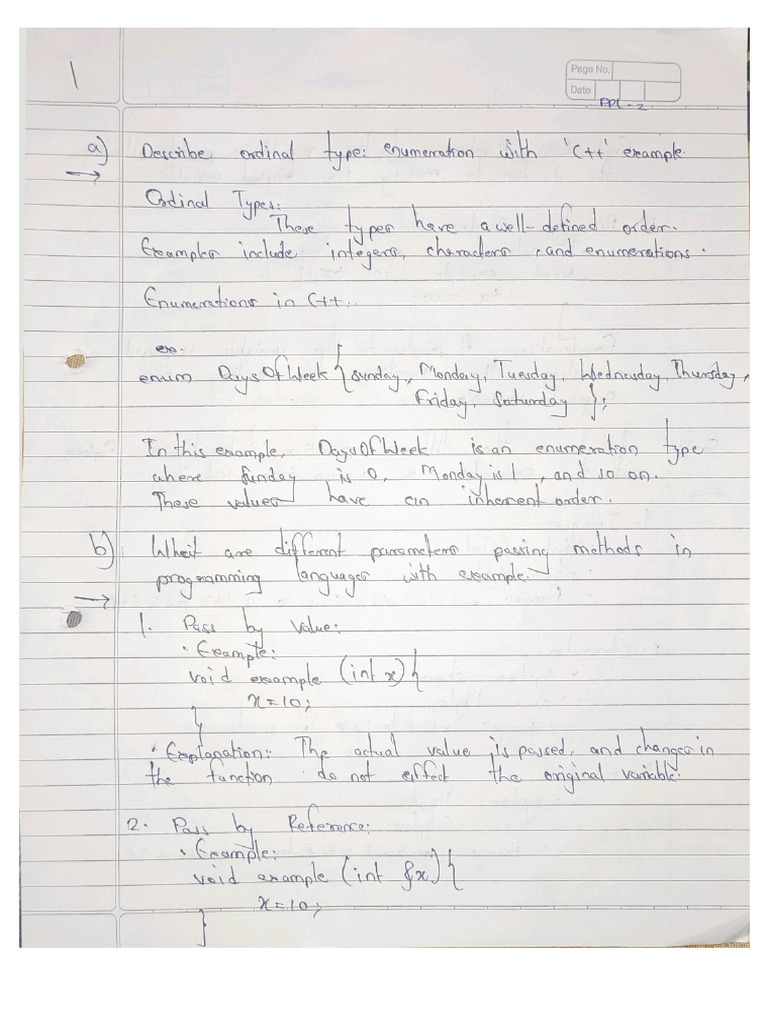 1
Page No.
Date
PPL - 2
a) Describe ordinal type: enumeration with 'C++' example
→
Ordinal Types:
These types have a well-defined order.
Examples include integers, characters, and enumerations.
Enumerations in C++.
ex:
enum DaysOfWeek { Sunday, Monday, Tuesday, Wednesday, Thursday,
Friday, Saturday };
In this example, DaysOfWeek is an enumeration type
where Sunday is 0, Monday is 1, and so on.
These values have an inherent order.
b) What are different parameters passing methods in
programming languages with example.
→
1. Pass by Value:
• Example:
void example (int x) {
x=10;
}
• Explanation: The actual value is passed, and changes in
the function do not effect the original variable.
2. Pass by Reference:
• Example:
void example (int &x) {
x=10;
}